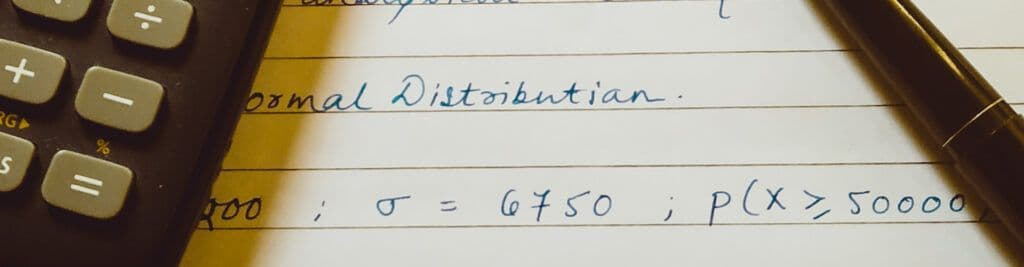 ormal Distribution.
000 ; σ = 6750 ; P(X ≥ 50000
÷
+ −
RG▶ %
S =